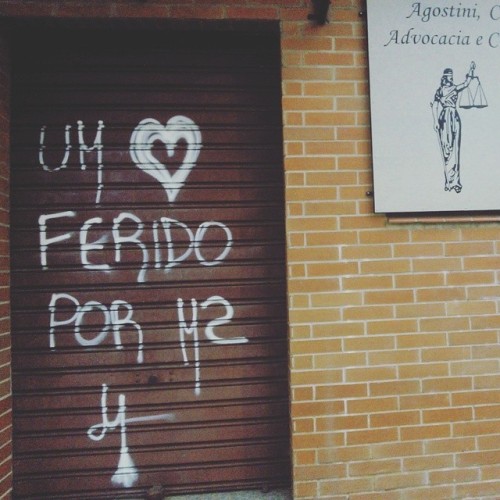 Agostini, C
Advocacia e C
UM
FERIDO
POR M2